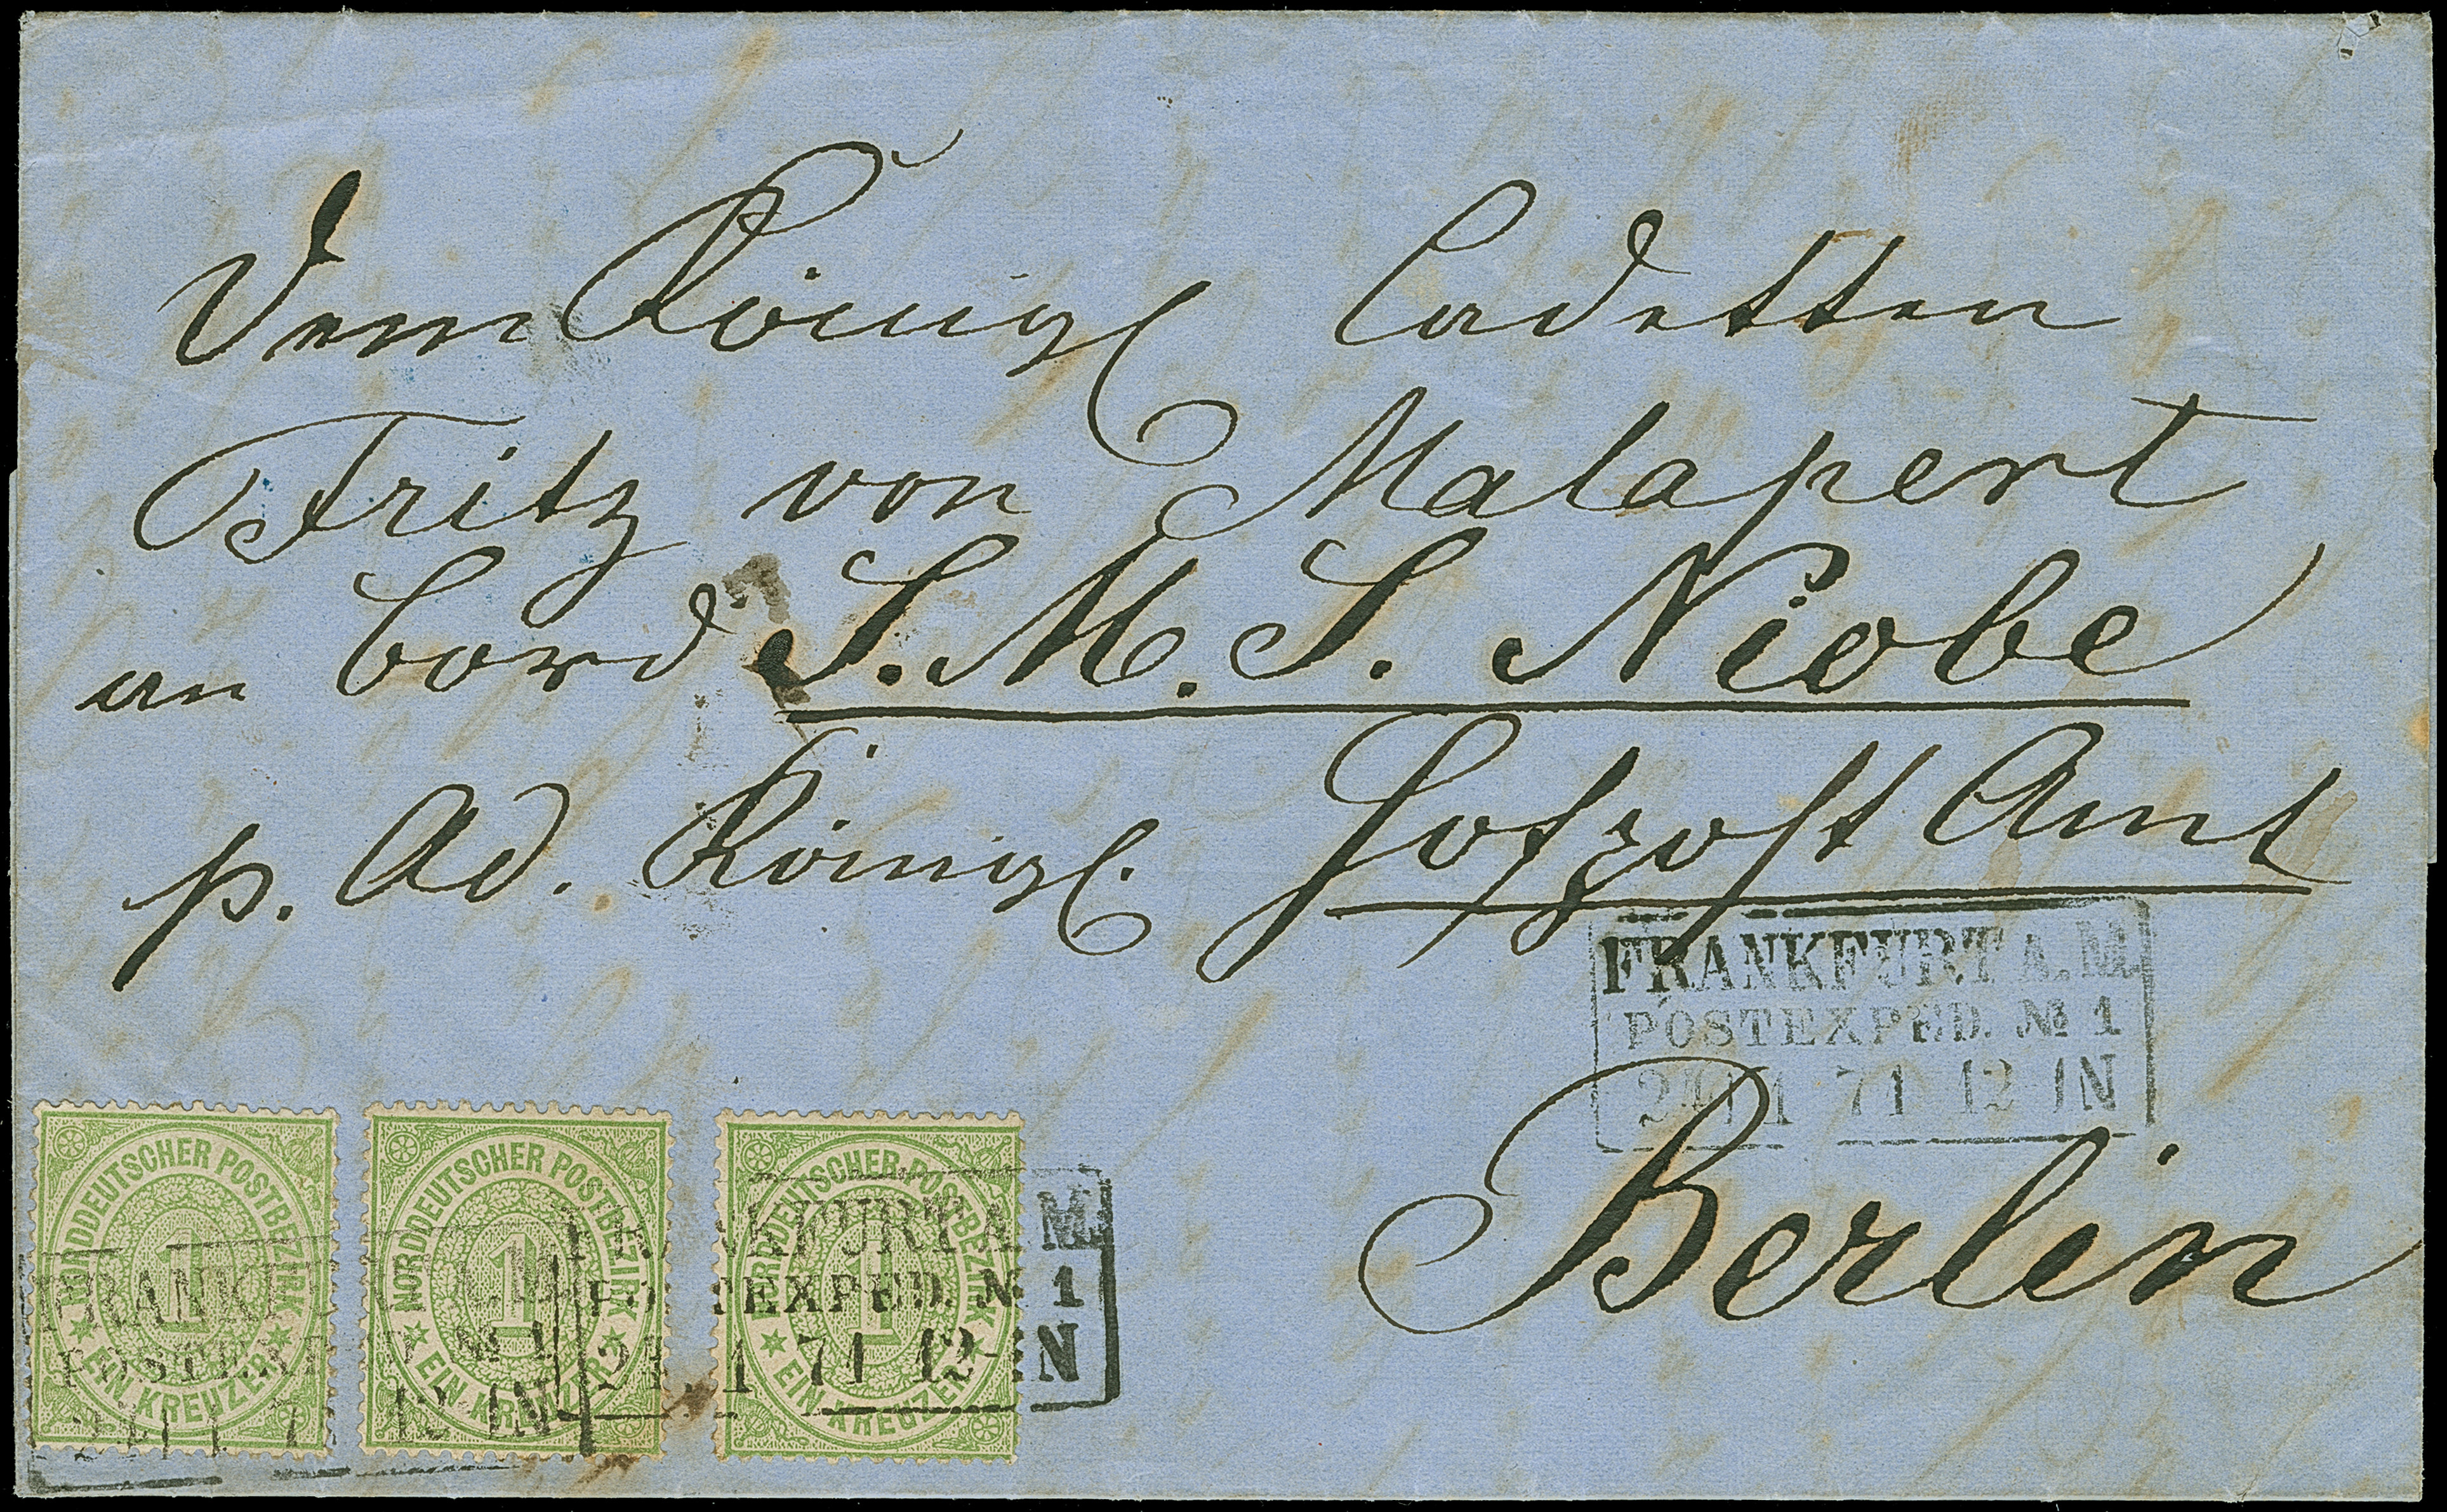 Dem Königl Cadetten
Fritz von Malapert
an bord S. M. S. Niobe
p. Ad. Königl. Hofpost Amt
FRANKFURT A. M.
POSTEXPED. No 1
24 1 71 12-1N
Berlin
NORDDEUTSCHER POSTBEZIRK
1
EIN KREUZER
NORDDEUTSCHER POSTBEZIRK
1
EIN KREUZER
NORDDEUTSCHER POSTBEZIRK
1
EIN KREUZER
FRANKF A.M.
POSTEXPED. No 1
24 1 71 12-1N
FRANKFURT A. M.
POSTEXPED. No 1
24 1 71 12-1N